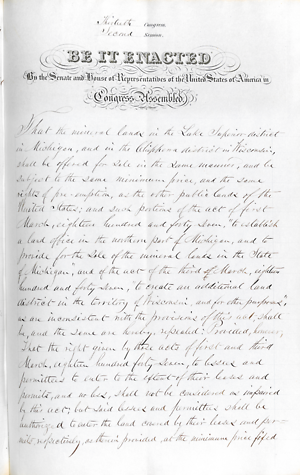 Thirtieth Congress
Second Session.
BE IT ENACTED
By the Senate and House of Representatives of the United States of America in
Congress Assembled,
That the mineral lands in the Lake Superior district
in Michigan, and in the Chippewa district in Wisconsin,
shall be offered for sale in the same manner, and be
subject to the same minimum price, and the same
rights of pre-emption, as the other public lands of the
United States; and such portions of the act of first
March, eighteen hundred and forty seven, to establish
a land office in the northern part of Michigan, and to
provide for the sale of the mineral lands in the State
of Michigan, and of the act of the third of March, eighteen
hundred and forty seven, to create an additional land
district in the territory of Wisconsin, and for other purposes,
as are inconsistent with the provisions of this act, shall
be, and the same are hereby, repealed: Provided, however,
That the right given by these acts of first and third
March, eighteen hundred forty seven, to lessees and
permittees to enter to the extent of their leases and
permits, and no less, shall not be considered as impaired
by this act, but said lessees and permittees shall be
authorized to enter the land covered by their leases and per-
mits, respectively, as therein provided, at the minimum price fixed